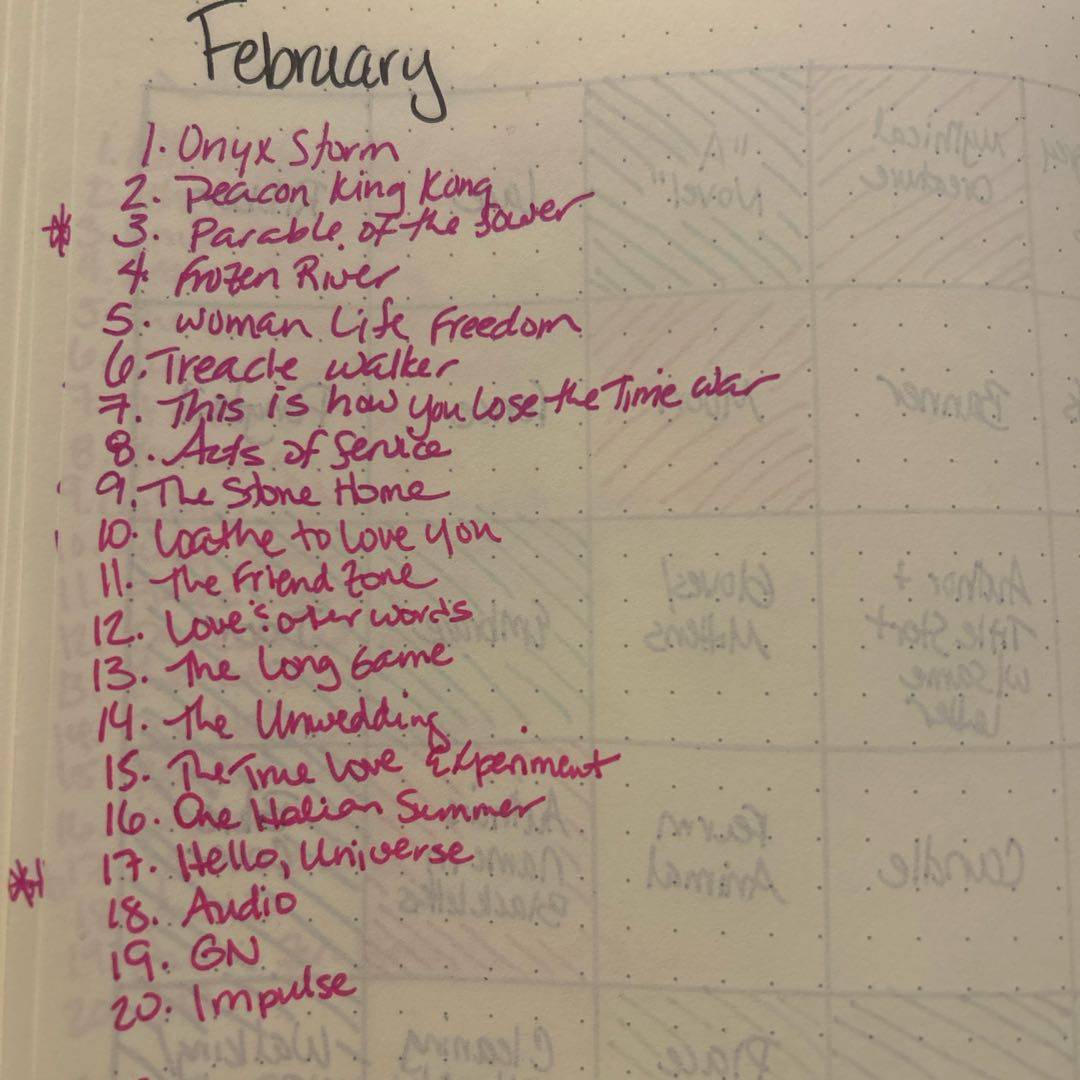 February
1. Onyx Storm
2. Deacon King Kong
* 3. Parable of the Sower
4. Frozen River
5. Woman Life Freedom
6. Treacle Walker
7. This is how you lose the Time War
8. Acts of Service
9. The Stone Home
10. Loathe to Love You
11. The Friend Zone
12. Love & other words
13. The Long Game
14. The Unwedding
15. The True Love Experiment
16. One Italian Summer
* 17. Hello, Universe
18. Audio
19. GN
20. Impulse